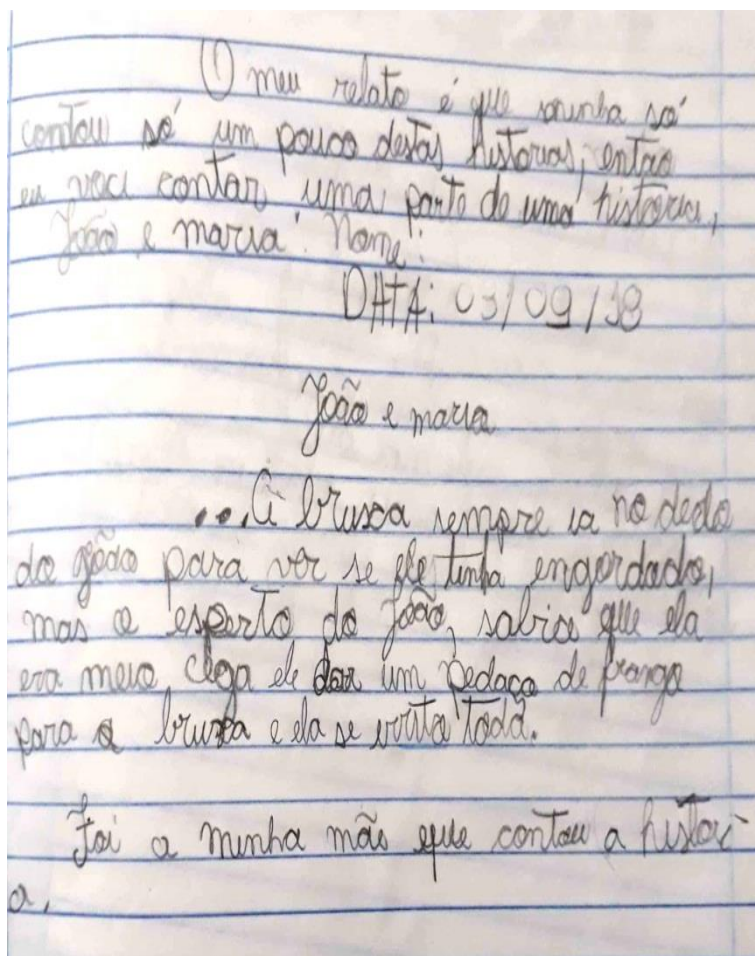 O meu relato é que minha só
contou só um pouco destas historias, então
eu vou contar uma parte de uma historia,
João e maria. Nome:
DATA: 03/09/18
João e maria
...A bruxa sempre ia no dedo
do joão para ver se ele tinha engordado,
mas o esperto do João, sabia que ela
era meio cega ele dar um pedaço de frango
para a bruxa e ela se irrita toda.
Foi a minha mãe que contou a histori
a.